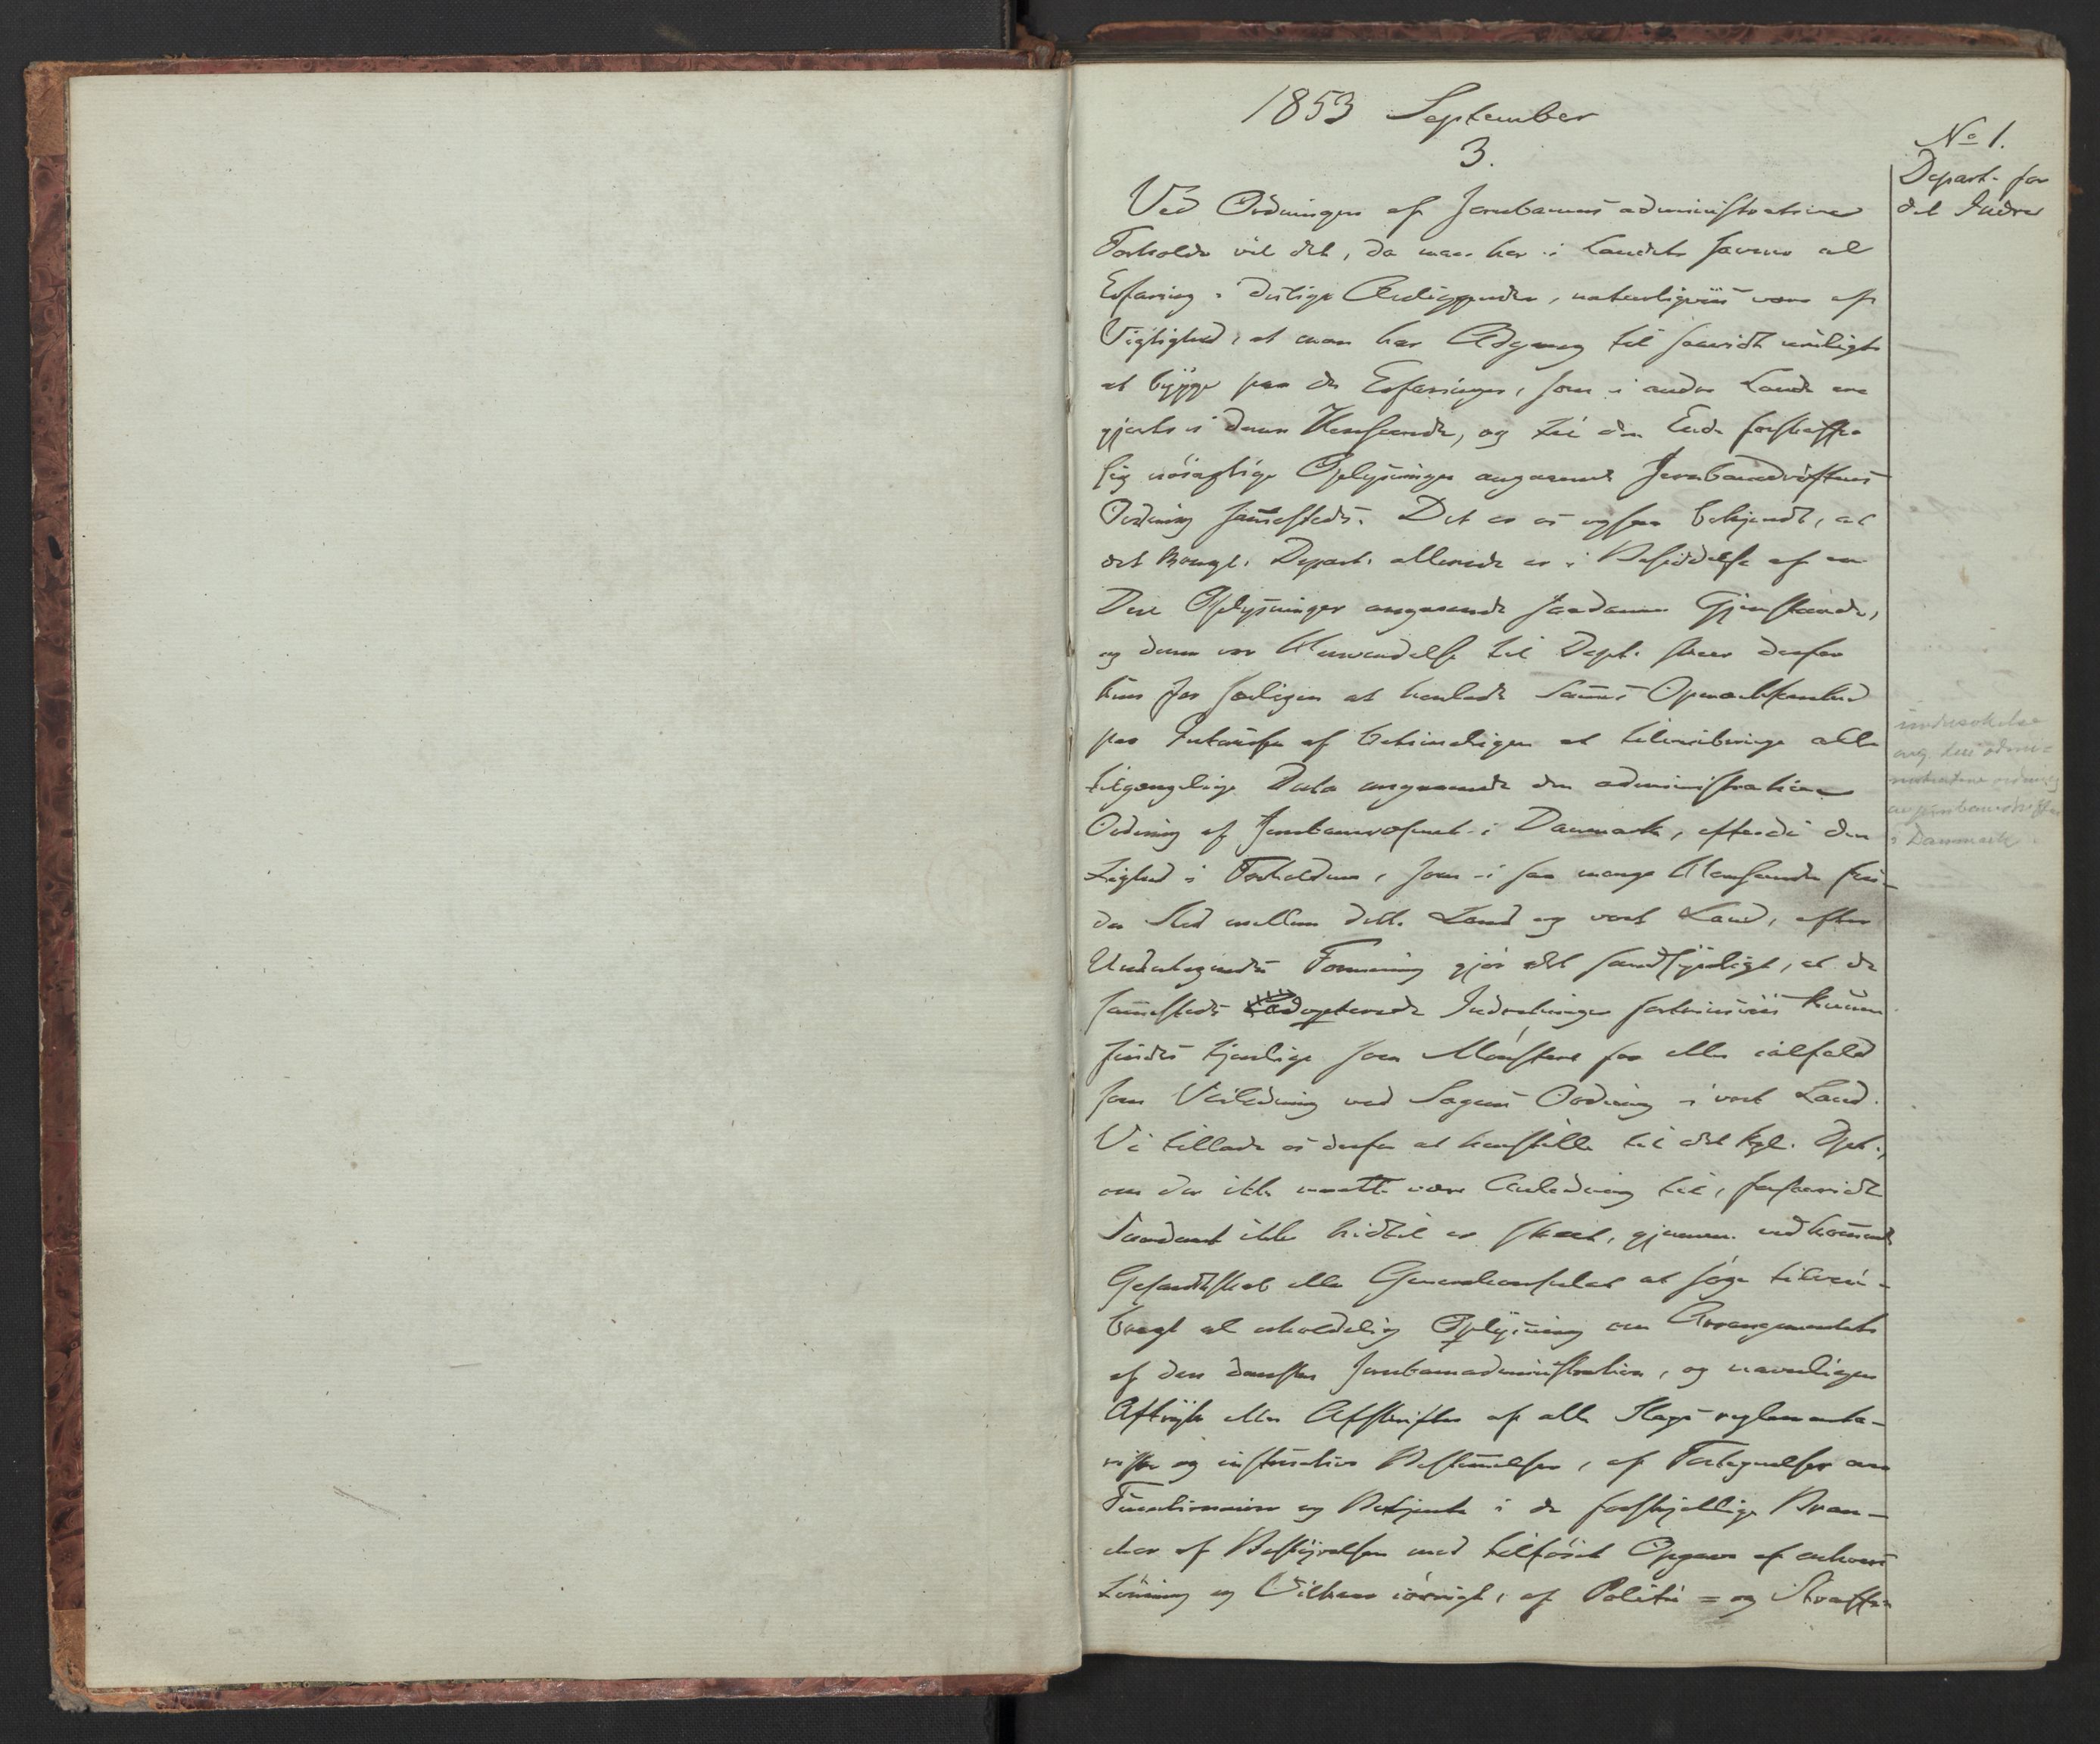 1853 September
3.
No 1.
Depart. for
det Indre
Ved Ordningen af Jernbanens administrative
Forholde vil det, da man her i Landet savner al
Erfaring i deslige Anliggender, naturligviis være af
Vigtighed, at man har Adgang til saavidt muligt
at bygge paa de Erfaringer, som i andre Lande ere
gjorte i denne Henseende, og til den Ende forskaffe
sig nöiagtige Oplysninger angaaende Jernbanedriftens
Ordning sammesteds. Det er os ogsaa bekjendt, at
det kongl. Depart. allerede er i Besiddelse af en
Deel Oplysninger angaaende saadanne Gjenstande,
og denne vor Henvendelse til Dept. skeer derfor
kun for særligen at henlede Sammes Opmærksomhed
paa Interessen af betimeligen at tilveiebringe alle
tilgængelige Data angaaende den administrative
Ordning af Jernbanevæsenet i Danmark, efterdi den
Lighed i Forholdene, som i saa mange Henseender fin-
der Sted mellem dette Land og vort Land, efter
Undertegnedes Formening gjör det sandsynligt, at de
sammesteds adopterede Indretninger fortrinsviis kunne
findes tjenlige som Mönstere for eller ialfald
som Veiledning ved Sagens Ordning i vort Land.
Vi tillade os derfor at henstille til det kgl. Dpt.,
om der ikke maatte være Anledning til, forsaavidt
Saadant ikke hidtil er skeet, gjennem vedkommende
Gesandtskab eller Generalconsulat at söge tilveie-
bragt al erholdelig Oplysning om Arrangementet
af den danske Jernbaneadministration, og navnligen
Aftryk eller Afskrifter af alle Slags reglementa-
riske og instructive Bestemmelser, af Fortegnelser over
Functionairer og Betjente i de forskjellige Bran-
cher af Bestyrelsen med tilföiet Opgave af enhvers
Lönning og Vilkaar iövrigt, af Politi= og Straffe-
undersökelse
ang. den admi=
nistrative ordning
av jernbanedriften
i Danmark